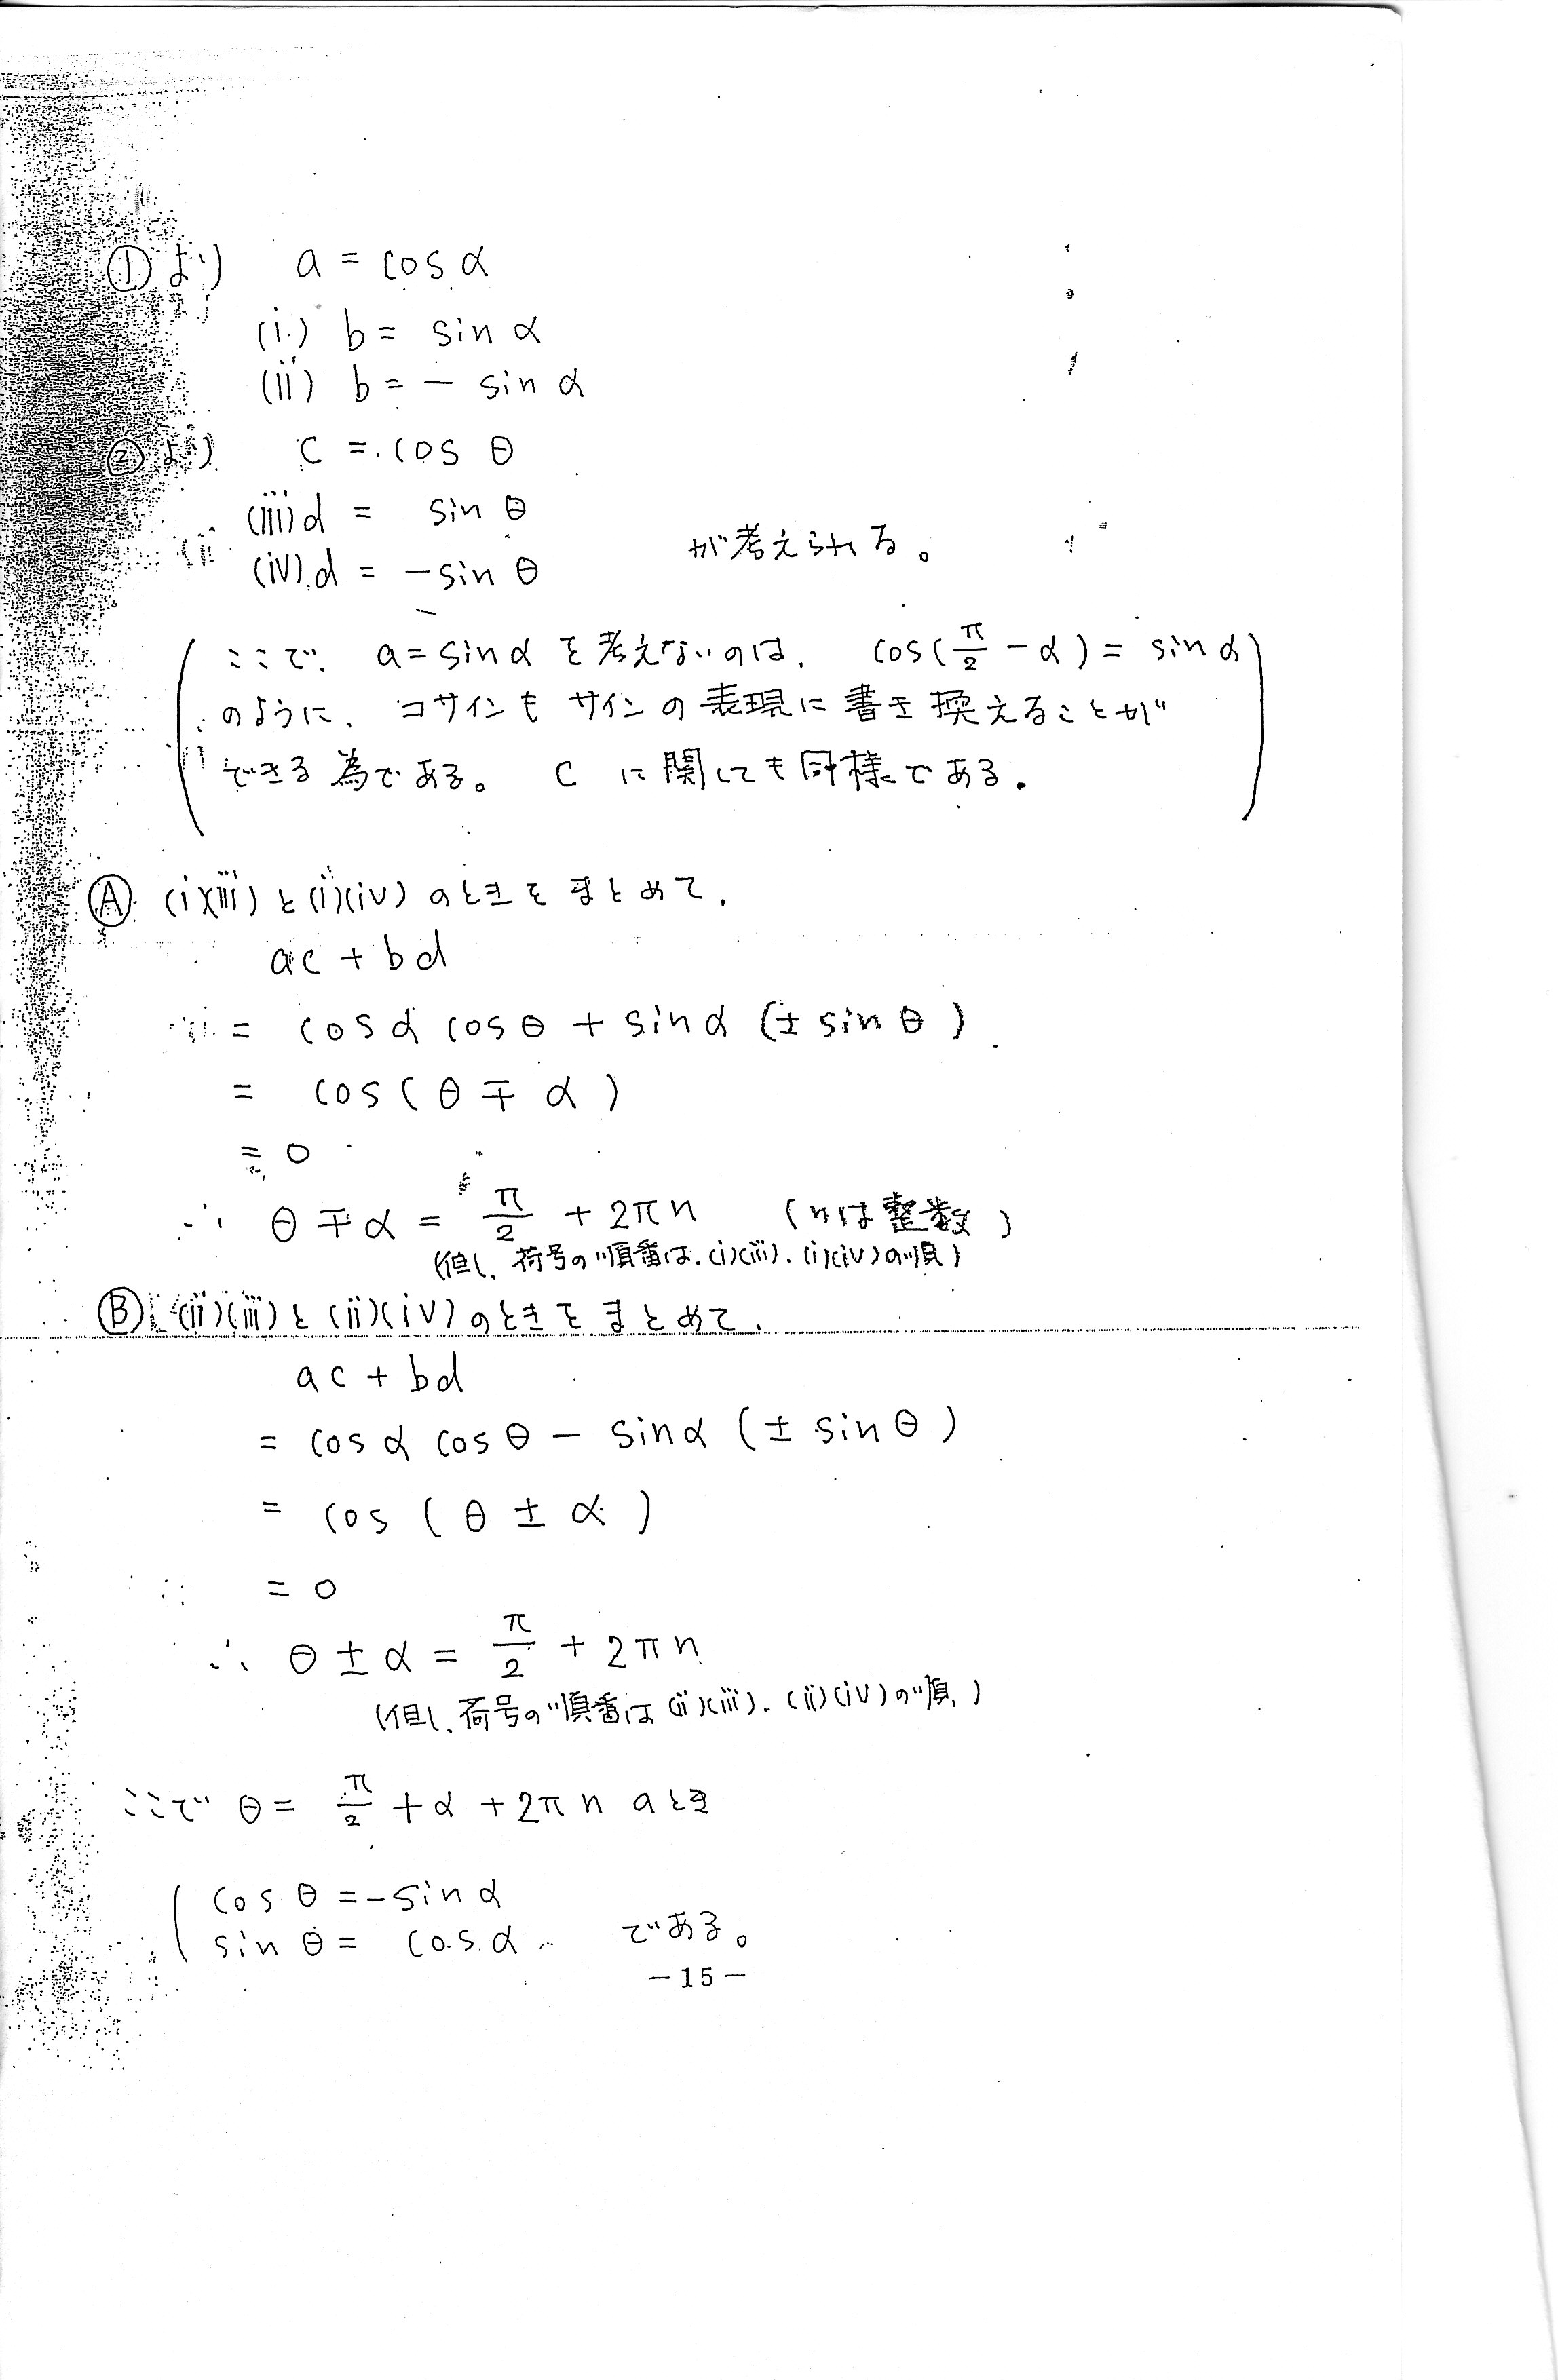 ①より a = cos α
(i) b = sin α
(ii) b = − sin α
②より c = cos θ
(iii) d = sin θ
が考えられる。
(iv) d = −sin θ
ここで、a = sin α を考えないのは、cos(π/2 − α) = sin α
のように、コサインも サインの表現に書き換えることが
できる為である。 c に関しても同様である.
Ⓐ (i)(iii) と (i)(iv) のときをまとめて,
ac + bd
= cos α cos θ + sin α (± sin θ)
= cos (θ ∓ α)
= 0
∴ θ ∓ α = π/2 + 2πn (nは整数)
(但し、荷号の順番は, (i)(iii), (i)(iv)の順)
Ⓑ (ii)(iii) と (ii)(iv) のときをまとめて,
ac + bd
= cos α cos θ − sin α (± sin θ)
= cos (θ ± α)
= 0
∴ θ ± α = π/2 + 2πn
(但し、荷号の順番は (ii)(iii), (ii)(iv) の順)
ここで θ = π/2 + α + 2πn のとき
cos θ = − sin α
sin θ = cos α である。
−15−